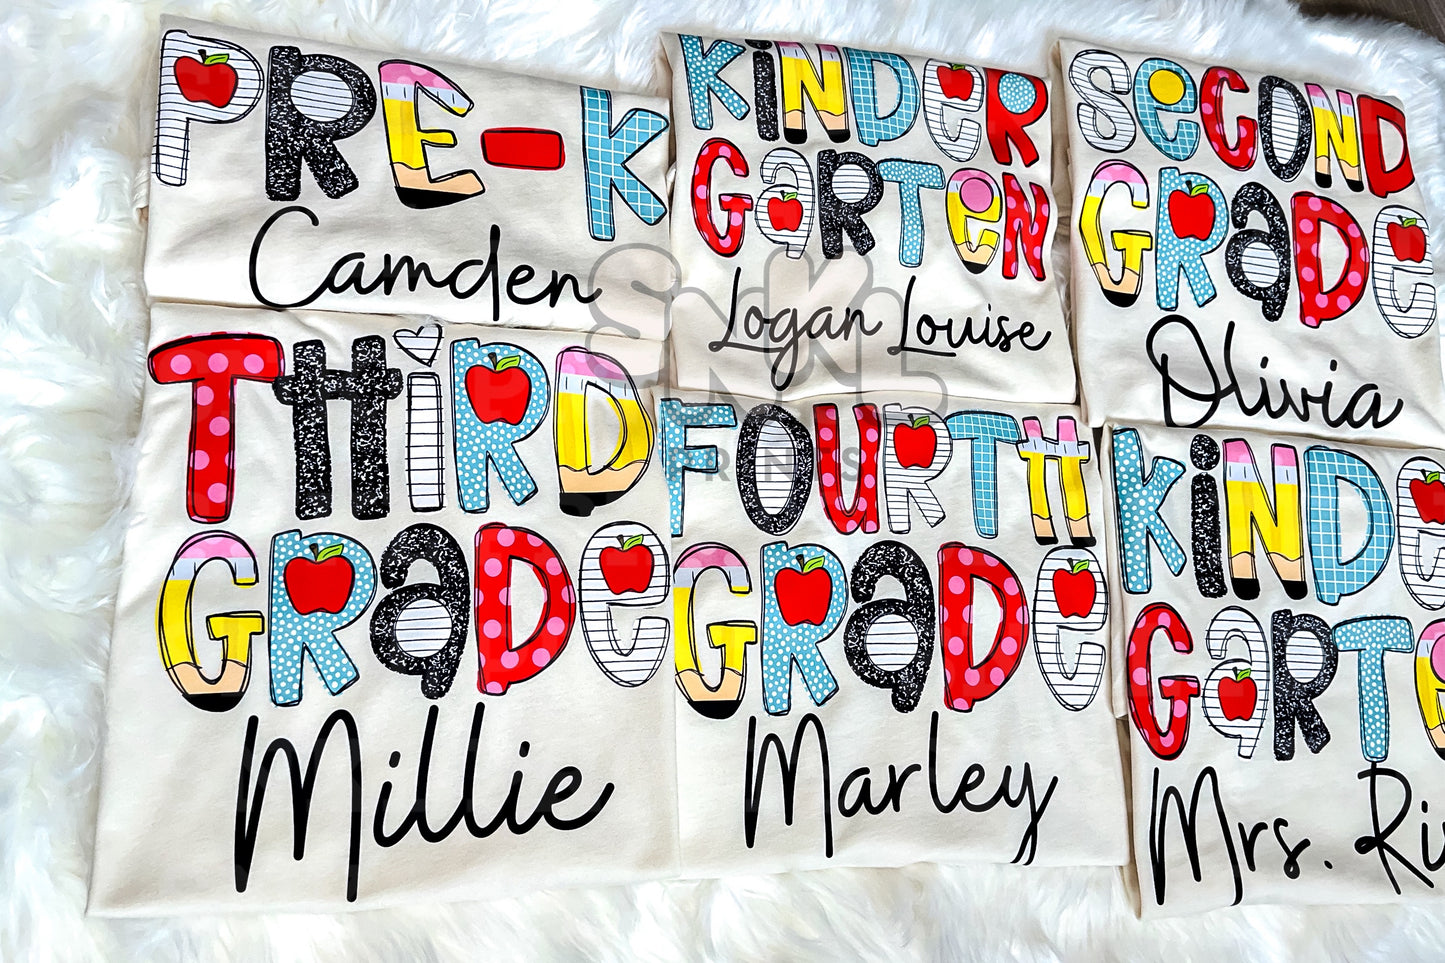 PRE-K
Camden
KiNDER
GaRTeN
Logan Louise
SeCOND
GRaDe
Olivia
THiRD
GRaDe
Millie
FOURTH
GRaDe
Marley
KiNDe
GaRT
Mrs.
PRINTS